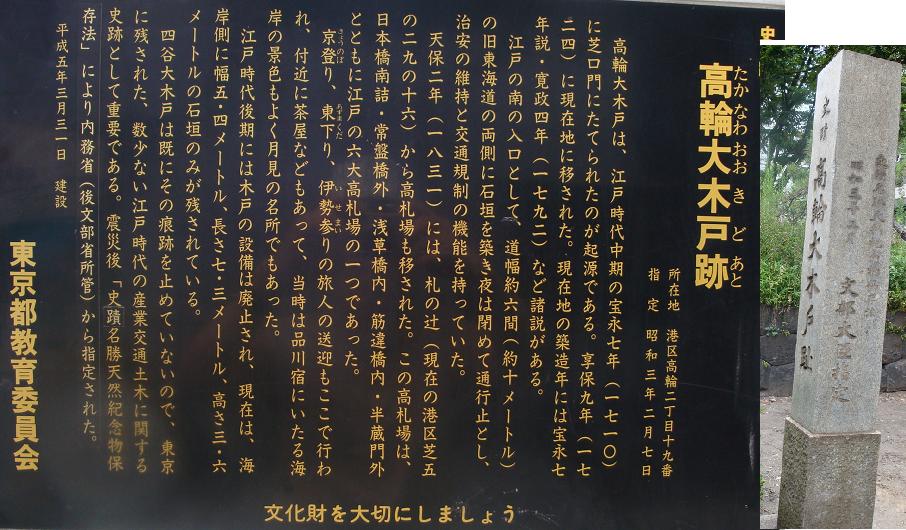 史
高輪大木戸跡
たかなわおおきどあと
所在地 港区高輪二丁目十九番
指定 昭和三年二月七日
高輪大木戸は、江戸時代中期の宝永七年（一七一〇）
に芝口門にたてられたのが起源である。享保九年（一七
二四）に現在地に移された。現在地の築造年には宝永七
年説・寛政四年（一七九二）など諸説がある。
江戸の南の入口として、道幅約六間（約十メートル）
の旧東海道の両側に石垣を築き夜は閉めて通行止とし、
治安の維持と交通規制の機能を持っていた。
天保二年（一八三一）には、札の辻（現在の港区芝五
の二九の十六）から高札場も移された。この高札場は、
日本橋南詰・常盤橋外・浅草橋内・筋違橋内・半蔵門外
とともに江戸の六大高札場の一つであった。
京登り、東下り、伊勢参りの旅人の送迎もここで行わ
きょうのぼ あずまくだ いせまい
れ、付近に茶屋などもあって、当時は品川宿にいたる海
岸の景色もよく月見の名所でもあった。
江戸時代後期には木戸の設備は廃止され、現在は、海
岸側に幅五・四メートル、長さ七・三メートル、高さ三・六
メートルの石垣のみが残されている。
四谷大木戸は既にその痕跡を止めていないので、東京
に残された、数少ない江戸時代の産業交通土木に関する
史跡として重要である。震災後「史蹟名勝天然紀念物保
存法」により内務省（後文部省所管）から指定された。
平成五年三月三一日 建設
東京都教育委員会
文化財を大切にしましょう
史蹟 高輪大木戸趾
文部大臣指定